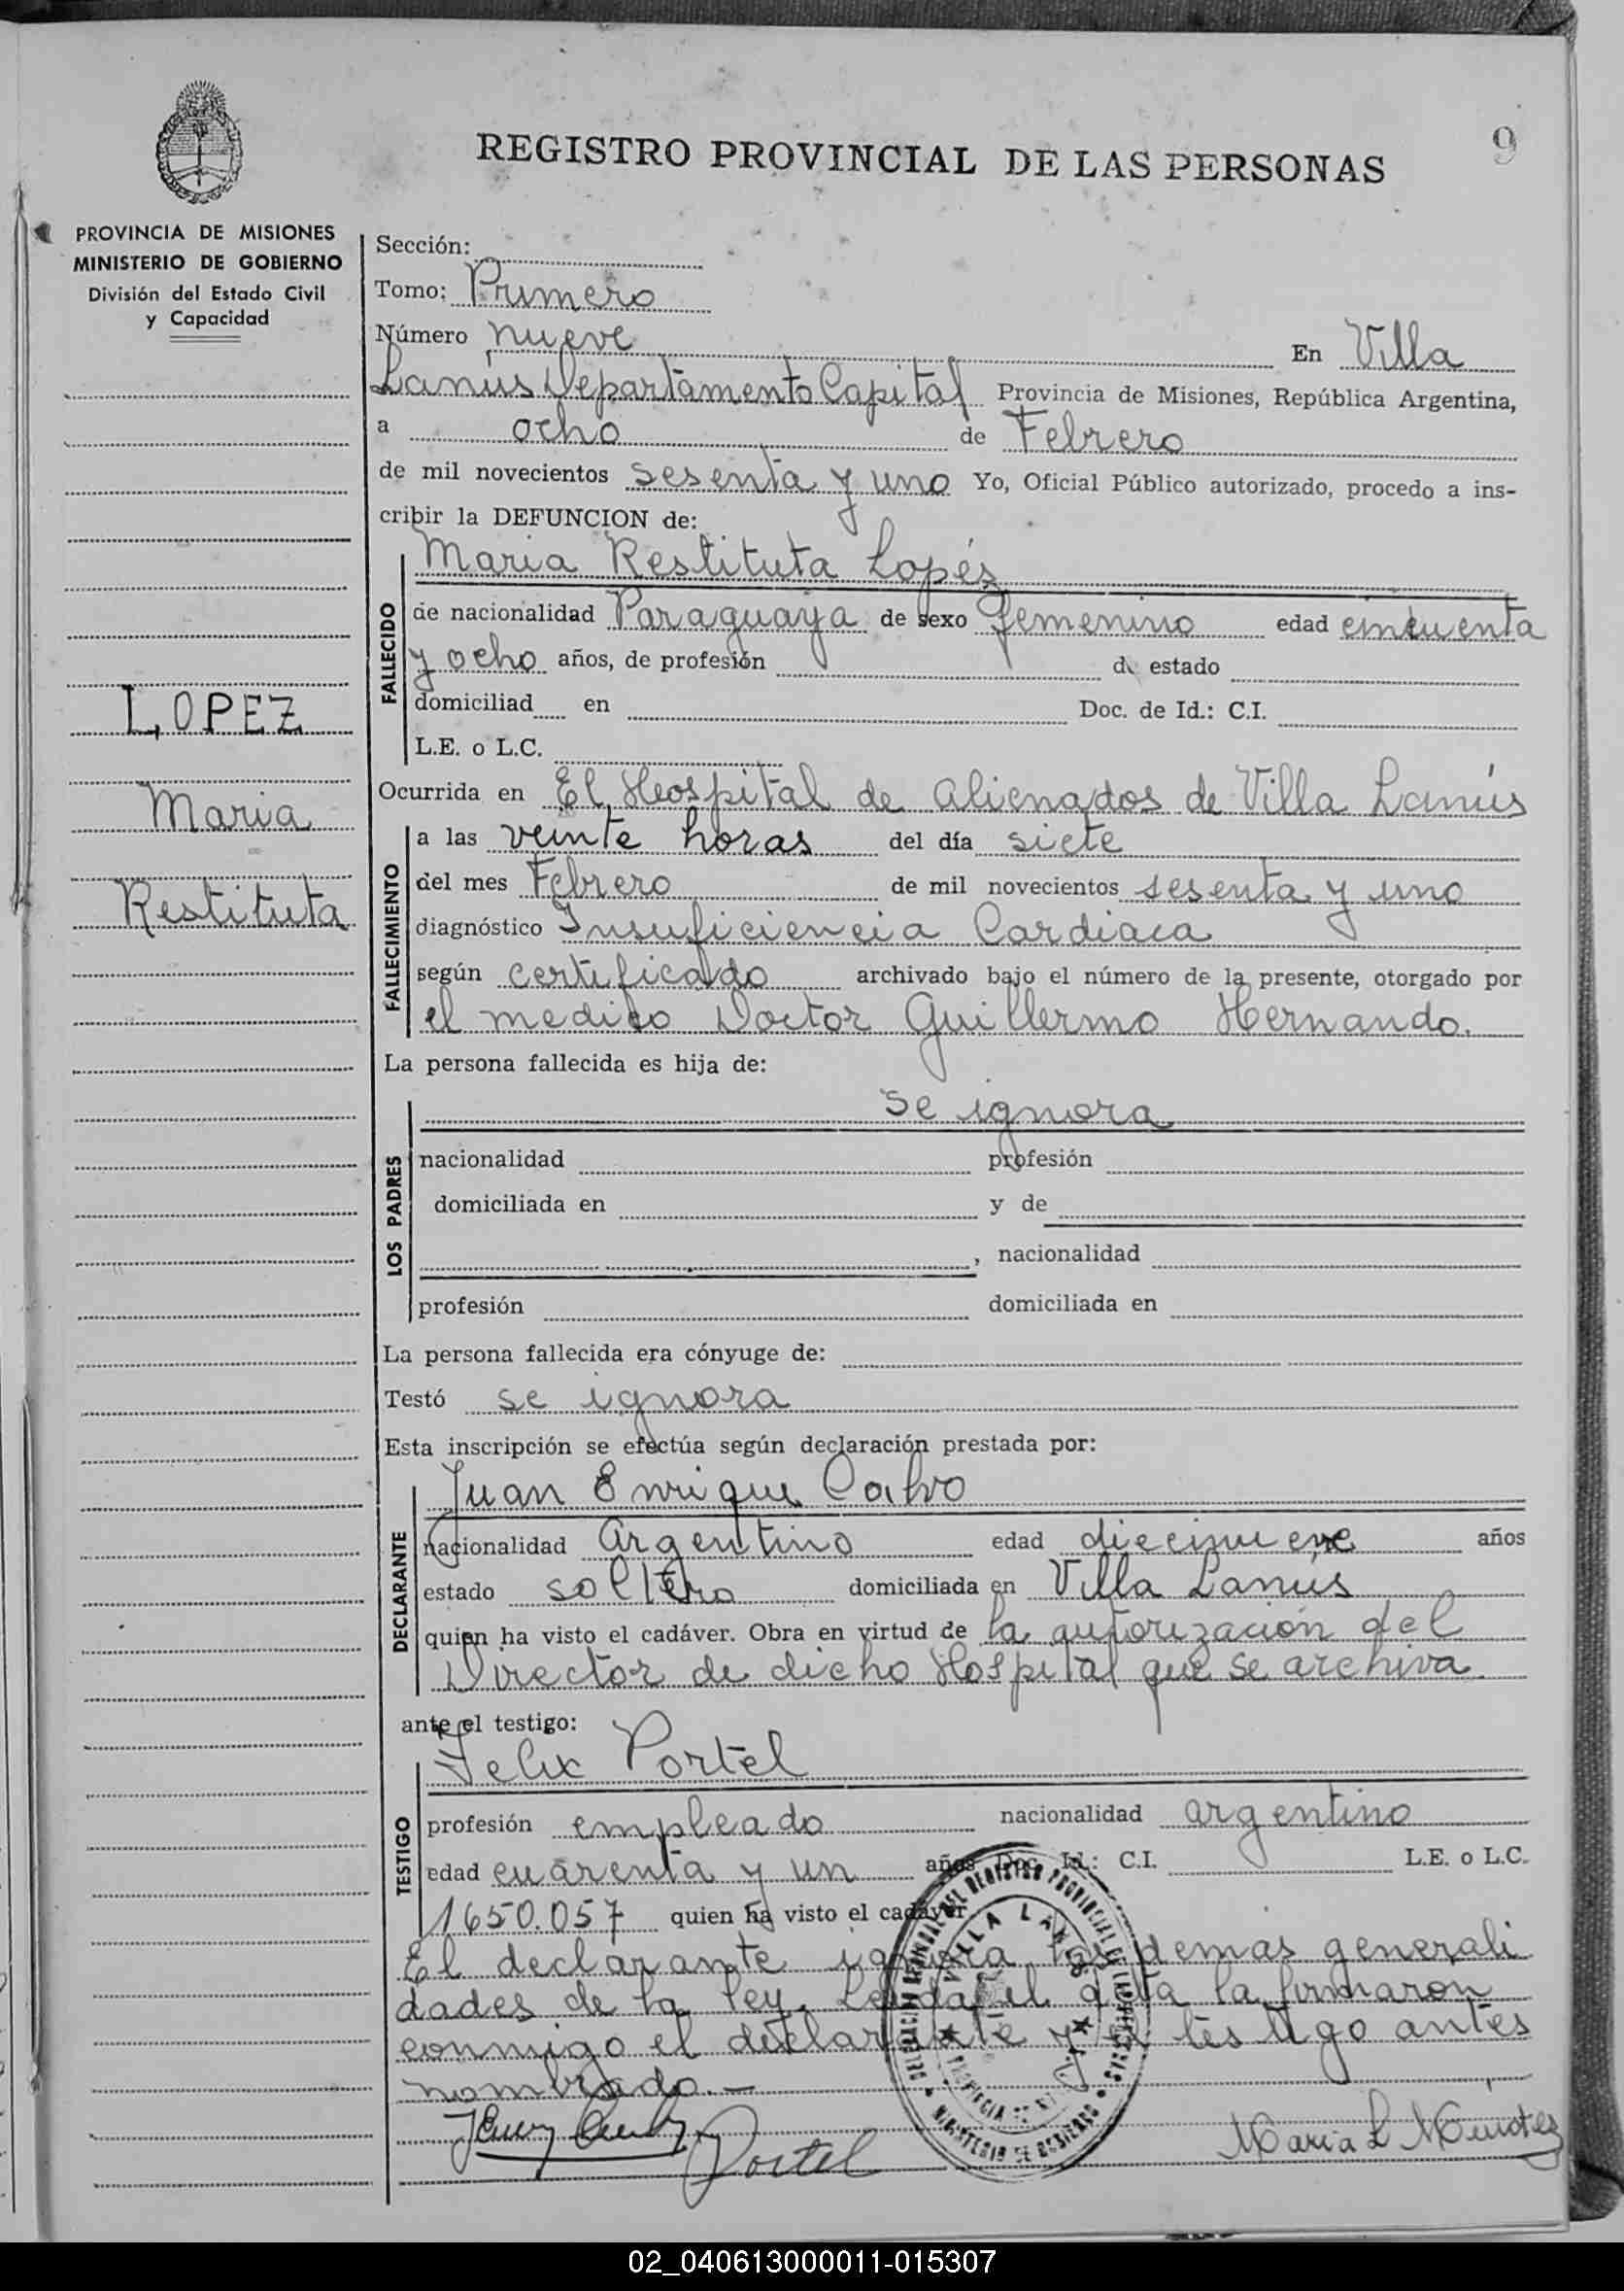 REGISTRO PROVINCIAL DE LAS PERSONAS
9
PROVINCIA DE MISIONES
MINISTERIO DE GOBIERNO
División del Estado Civil
y Capacidad
LOPEZ
Maria
Restituta
Sección:
Tomo: Primero
Número nueve En Villa
Lanús Departamento Capital Provincia de Misiones, República Argentina,
a ocho de Febrero
de mil novecientos sesenta y uno Yo, Oficial Público autorizado, procedo a ins-
cribir la DEFUNCION de:
Maria Restituta Lopés
FALLECIDO
de nacionalidad Paraguaya de sexo femenino edad cincuenta
y ocho años, de profesión de estado
domiciliad en Doc. de Id.: C.I.
L.E. o L.C.
Ocurrida en El Hospital de alienados de Villa Lanús
FALLECIMIENTO
a las veinte horas del día siete
del mes Febrero de mil novecientos sesenta y uno
diagnóstico Insuficiencia Cardiaca
según certificado archivado bajo el número de la presente, otorgado por
el medico Doctor Guillermo Hernando.
La persona fallecida es hija de:
se ignora
LOS PADRES
nacionalidad profesión
domiciliada en y de
, nacionalidad
profesión domiciliada en
La persona fallecida era cónyuge de:
Testó se ignora
Esta inscripción se efectúa según declaración prestada por:
Juan Enrique Calvo
DECLARANTE
nacionalidad argentino edad diecinueve años
estado soltero domiciliada en Villa Lanús
quien ha visto el cadáver. Obra en virtud de la autorización del
Director de dicho Hospital que se archiva
ante el testigo:
Felix Portel
TESTIGO
profesión empleado nacionalidad argentino
edad cuarenta y un años Doc. Id.: C.I. L.E. o L.C.
1650.057 quien ha visto el cadáver
El declarante ignora las demas generali
dades de la ley. Leida el acta la firmaron
conmigo el declarante y el testigo antes
nombrado.—
Portel
Maria L
DELEGACION SECCIONAL DEL REGISTRO PROVINCIAL DE LAS PERSONAS
VILLA LANUS
PROVINCIA DE MISIONES
MINISTERIO DE GOBIERNO
02_040613000011-015307